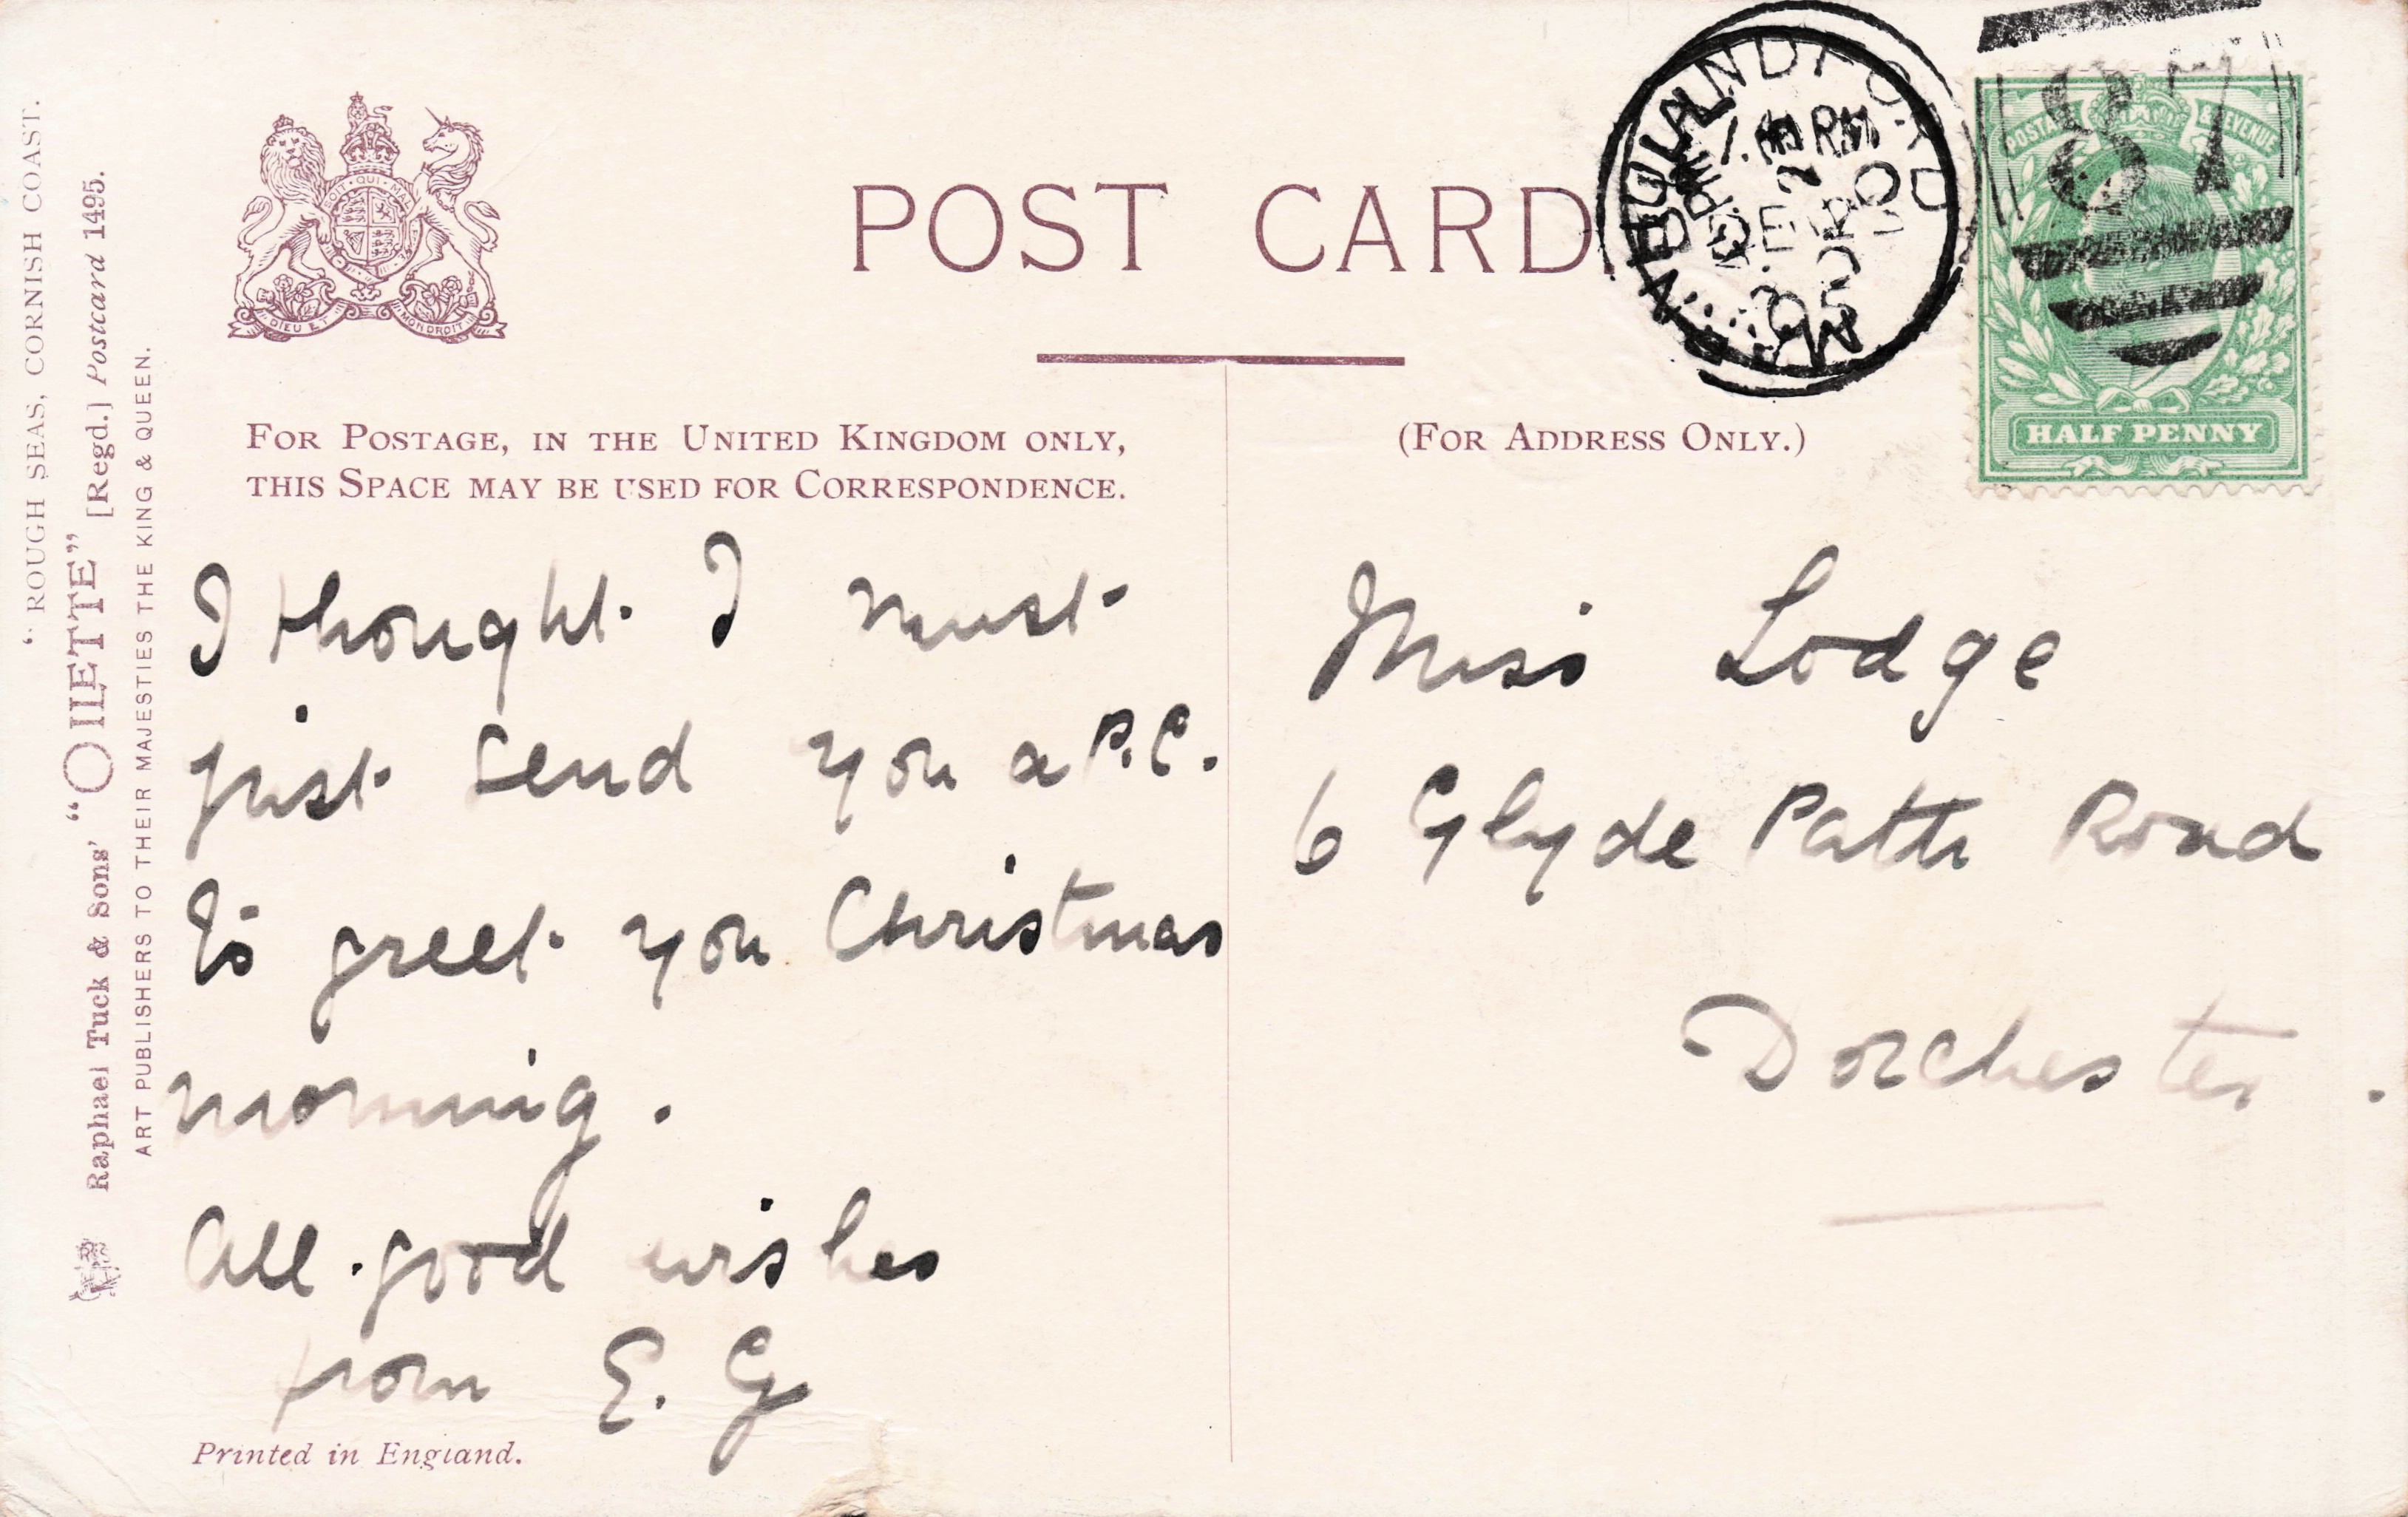 POST CARD.
FOR POSTAGE, IN THE UNITED KINGDOM ONLY,
THIS SPACE MAY BE USED FOR CORRESPONDENCE.
(FOR ADDRESS ONLY.)
I thought I must
just send you a P.C.
to greet you Christmas
morning.
All good wishes
from E. G
Miss Lodge
6 Glyde Path Road
Dorchester.
Printed in England.
"ROUGH SEAS, CORNISH COAST.
Raphael Tuck & Sons' "OILETTE" [Regd.] Postcard 1495.
ART PUBLISHERS TO THEIR MAJESTIES THE KING & QUEEN.
DIEU ET MON DROIT
BLANDFORD
POSTAGE & REVENUE
HALF PENNY
87